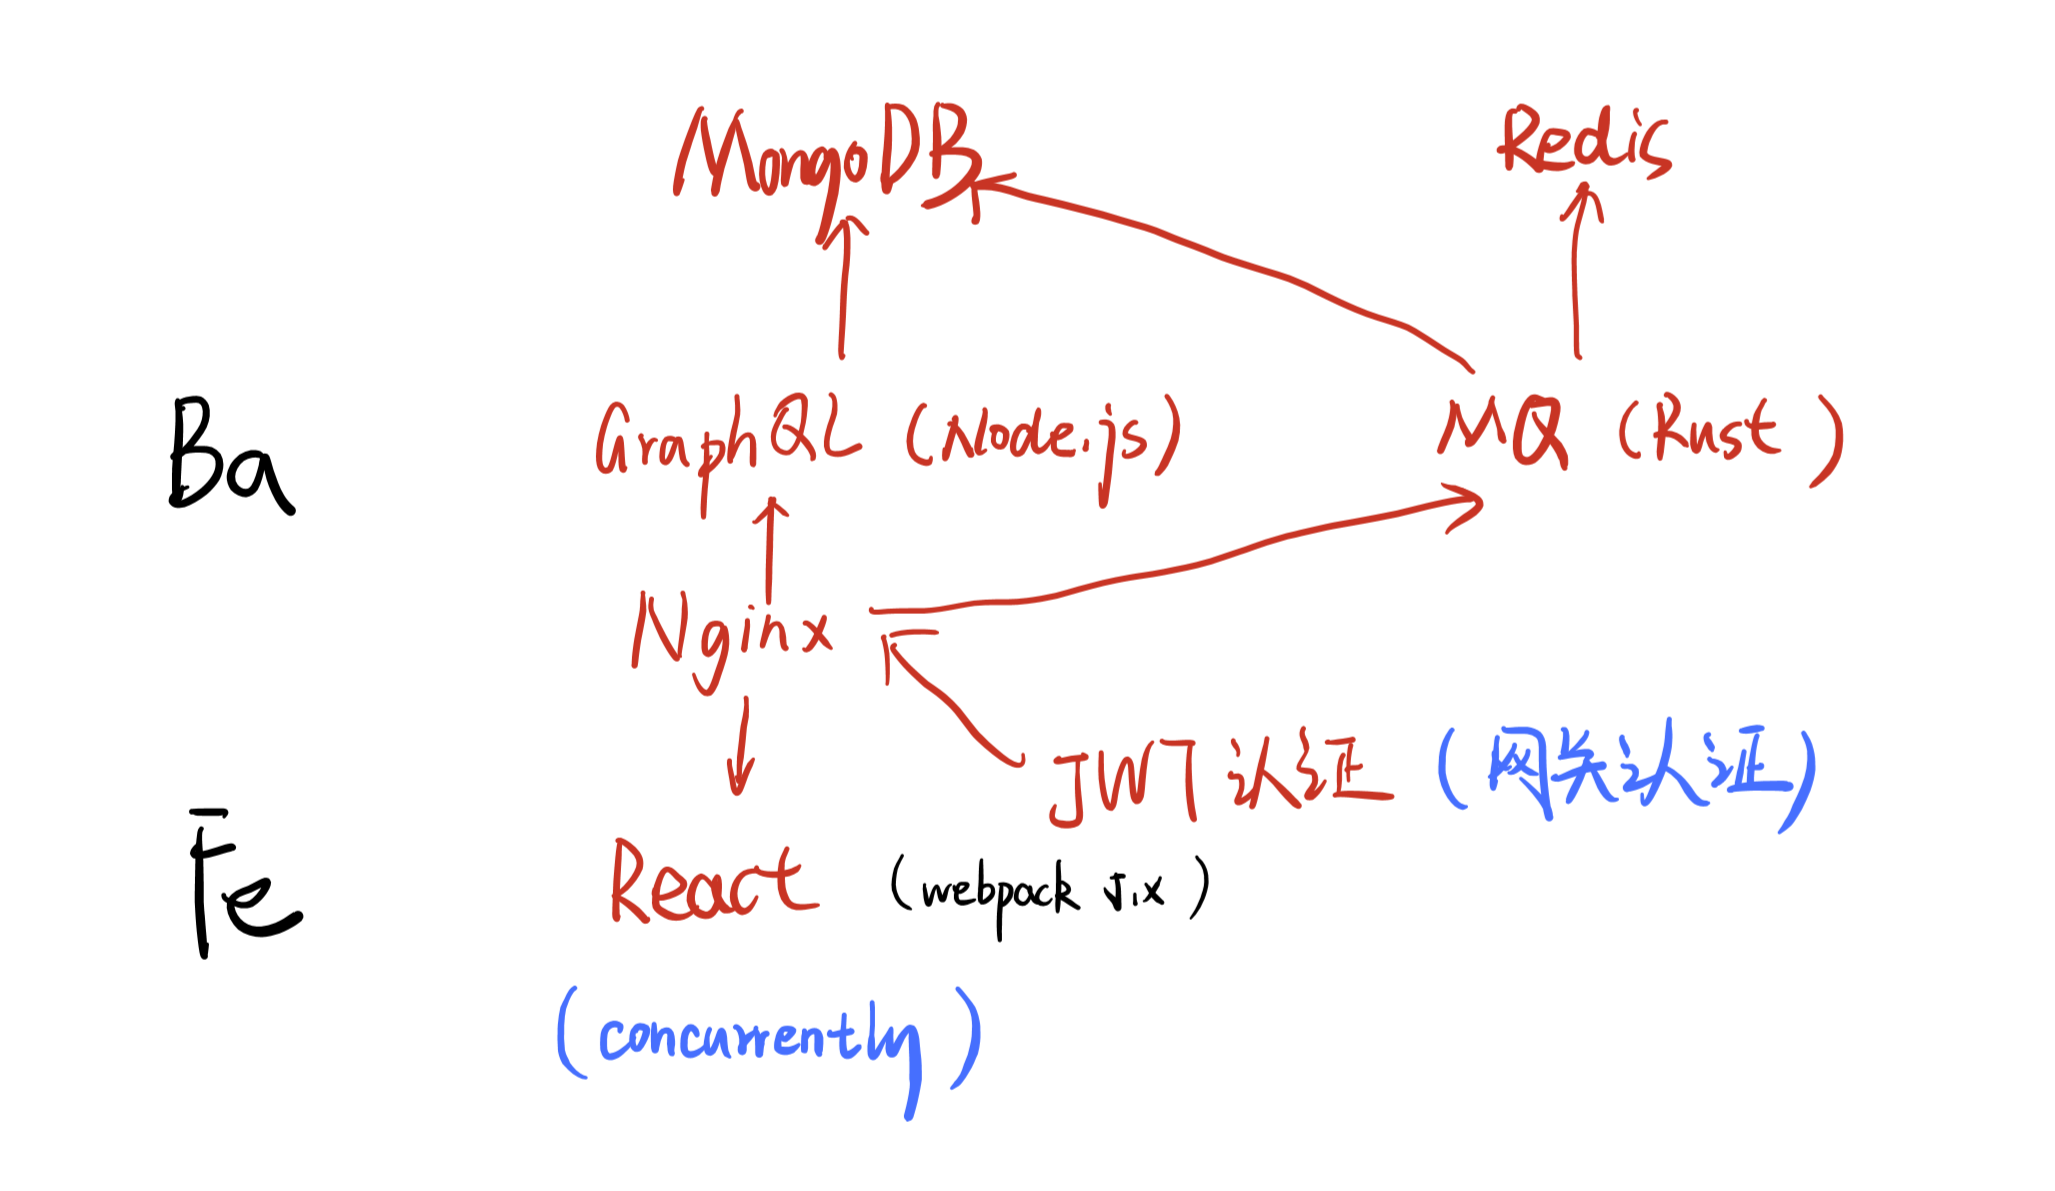 MongoDB Redis
Ba GraphQL (Node.js) MQ (Rust)
Nginx
JWT 认证 (网关认证)
Fe React (webpack 5.x)
(concurrently)